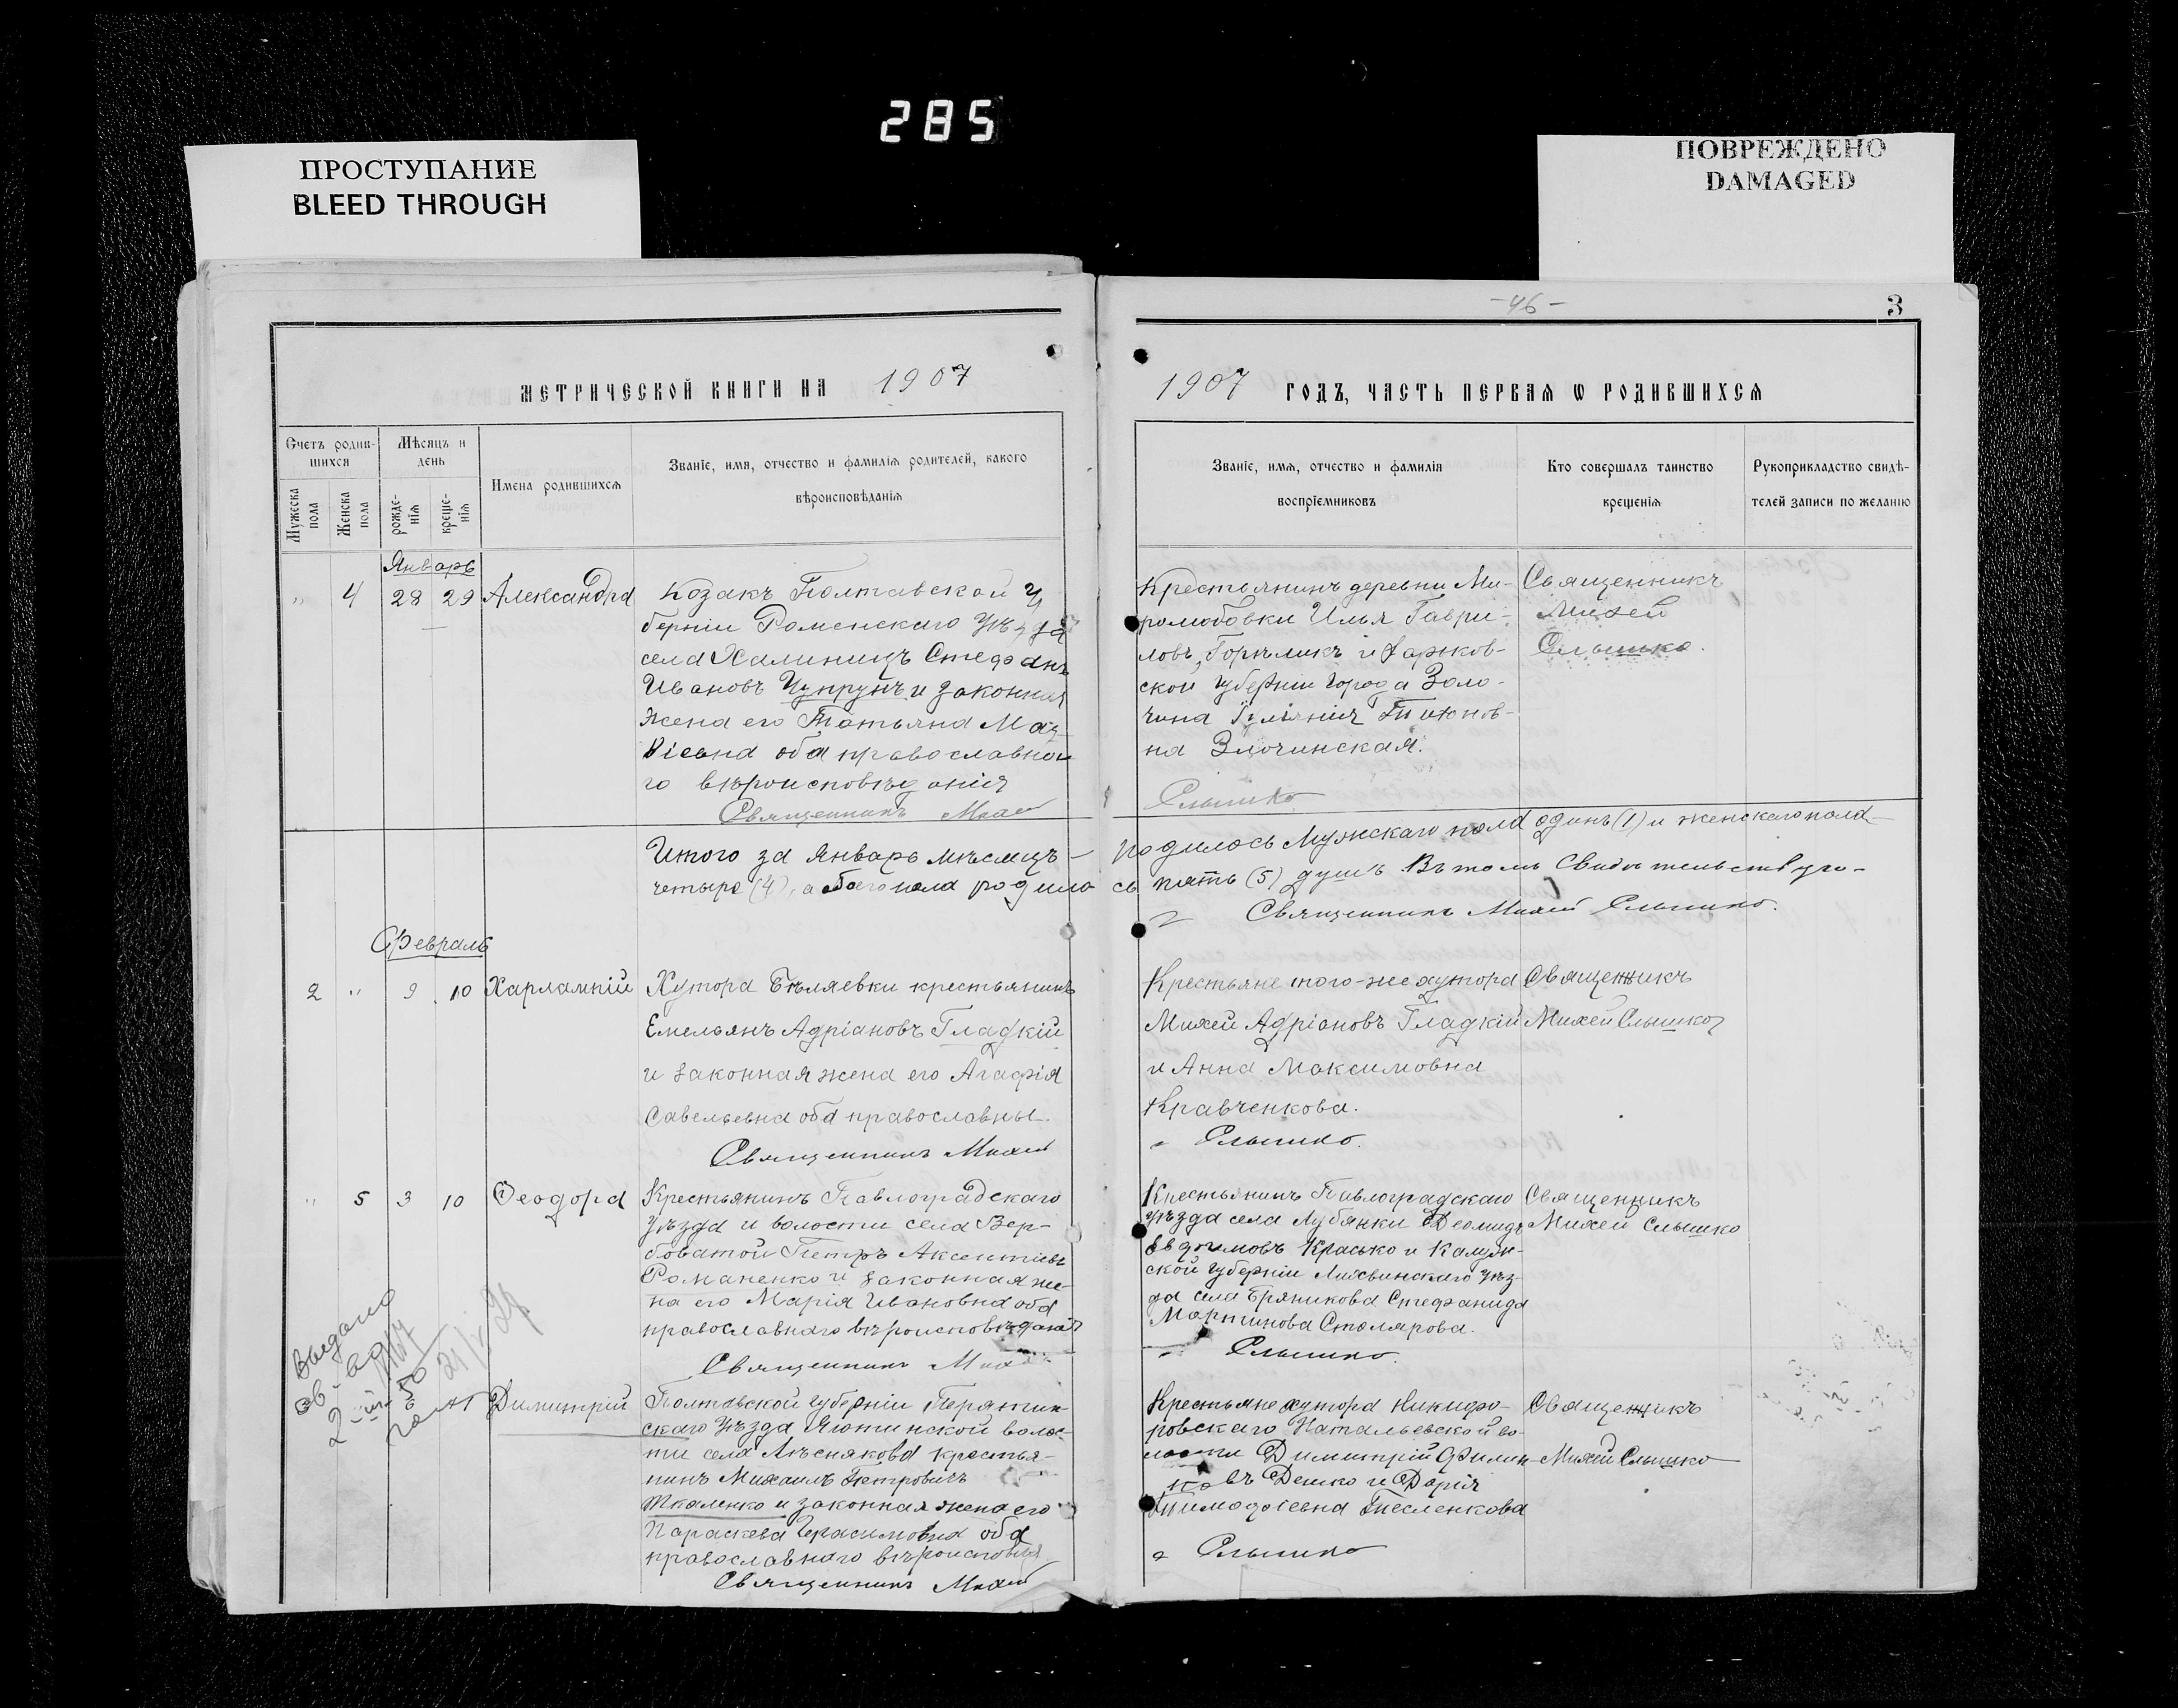 285
ПРОСТУПАНИЕ
BLEED THROUGH
ПОВРЕЖДЕНО
DAMAGED
-46-
3
МЕТРИЧЕСКОЙ КНИГИ НА 1907
1907 ГОДЪ, ЧАСТЬ ПЕРВАЯ Ѡ РОДИВШИХСЯ
Счетъ родив-
шихся
Мужеска пола
Женска пола
Мѣсяцъ и
день
рожде-
нія
креще-
нія
Имена родившихся
Званіе, имя, отчество и фамилія родителей, какого
вѣроисповѣданія
Званіе, имя, отчество и фамилія
воспріемниковъ
Кто совершалъ таинство
крещенія
Рукоприкладство свидѣ-
телей записи по желанію
Январь
" 4 28 29 Александра
Козакъ Полтавской гу
берніи Роменскаго уѣзда
села Стефанъ
Ивановъ Чупрунъ и законная
жена его Татьяна
оба православна
го вѣроисповѣданія
Священникъ Михей
Крестьянинъ деревни Ми-
ролюбовки Илья Гаври-
ловъ Горѣликъ и Харьков-
ской губерніи города Золо-
чина
на Злочинская.
Слышко
Священникъ
Михей
Слышко.
Итого за Январь мѣсяцъ - родилось Мужскаго пола одинъ (1) и женскаго пола -
четыре (4), а обоего пола родило сь пять (5) душъ. Въ томъ Свидѣтельствую -
Священникъ Михей Слышко.
Февраль
2 " 9 10 Харлампій
Хутора Бѣляевки крестьянинъ
Емельянъ Адріановъ Гладкій
и законная жена его Агафія
Савельевна оба православны.
Священникъ Михей
Крестьяне того-же хутора
Михей Адріановъ Гладкій
и Анна Максимовна
Кравченкова.
Слышко.
Священникъ
Михей Слышко
" 5 3 10 Ѳеодора
Крестьянинъ Павлоградскаго
уѣзда и волости села Вер-
боватой Петръ Аксентіевъ
Романенко и законная же-
на его Марія Ивановна оба
православнаго вѣроисповѣданія
Священникъ Михей
Крестьянинъ Павлоградскаго
уѣзда села Лубянки Деомидъ
Евдокимовъ Красько и Калуж-
ской губерніи Лихвинскаго уѣз-
да села Стефанида
Мартинова Столярова.
Слышко.
Священникъ
Михей Слышко
Выдано
Димитрій
Полтавской губерніи Пирятин-
скаго уѣзда Яготинской волос-
ти села Лѣснякова крестья-
нинъ Михаилъ Петровичъ
Ткаленко и законная жена его
Параскева Герасимовна оба
православнаго
Священникъ Михей
Крестьяне хутора Никифо-
ровскаго Натальевской во-
лости Димитрій Филип-
повъ Дешко и Дарія
Тимофіевна Тесленкова
Слышко
Священникъ
Михей Слышко